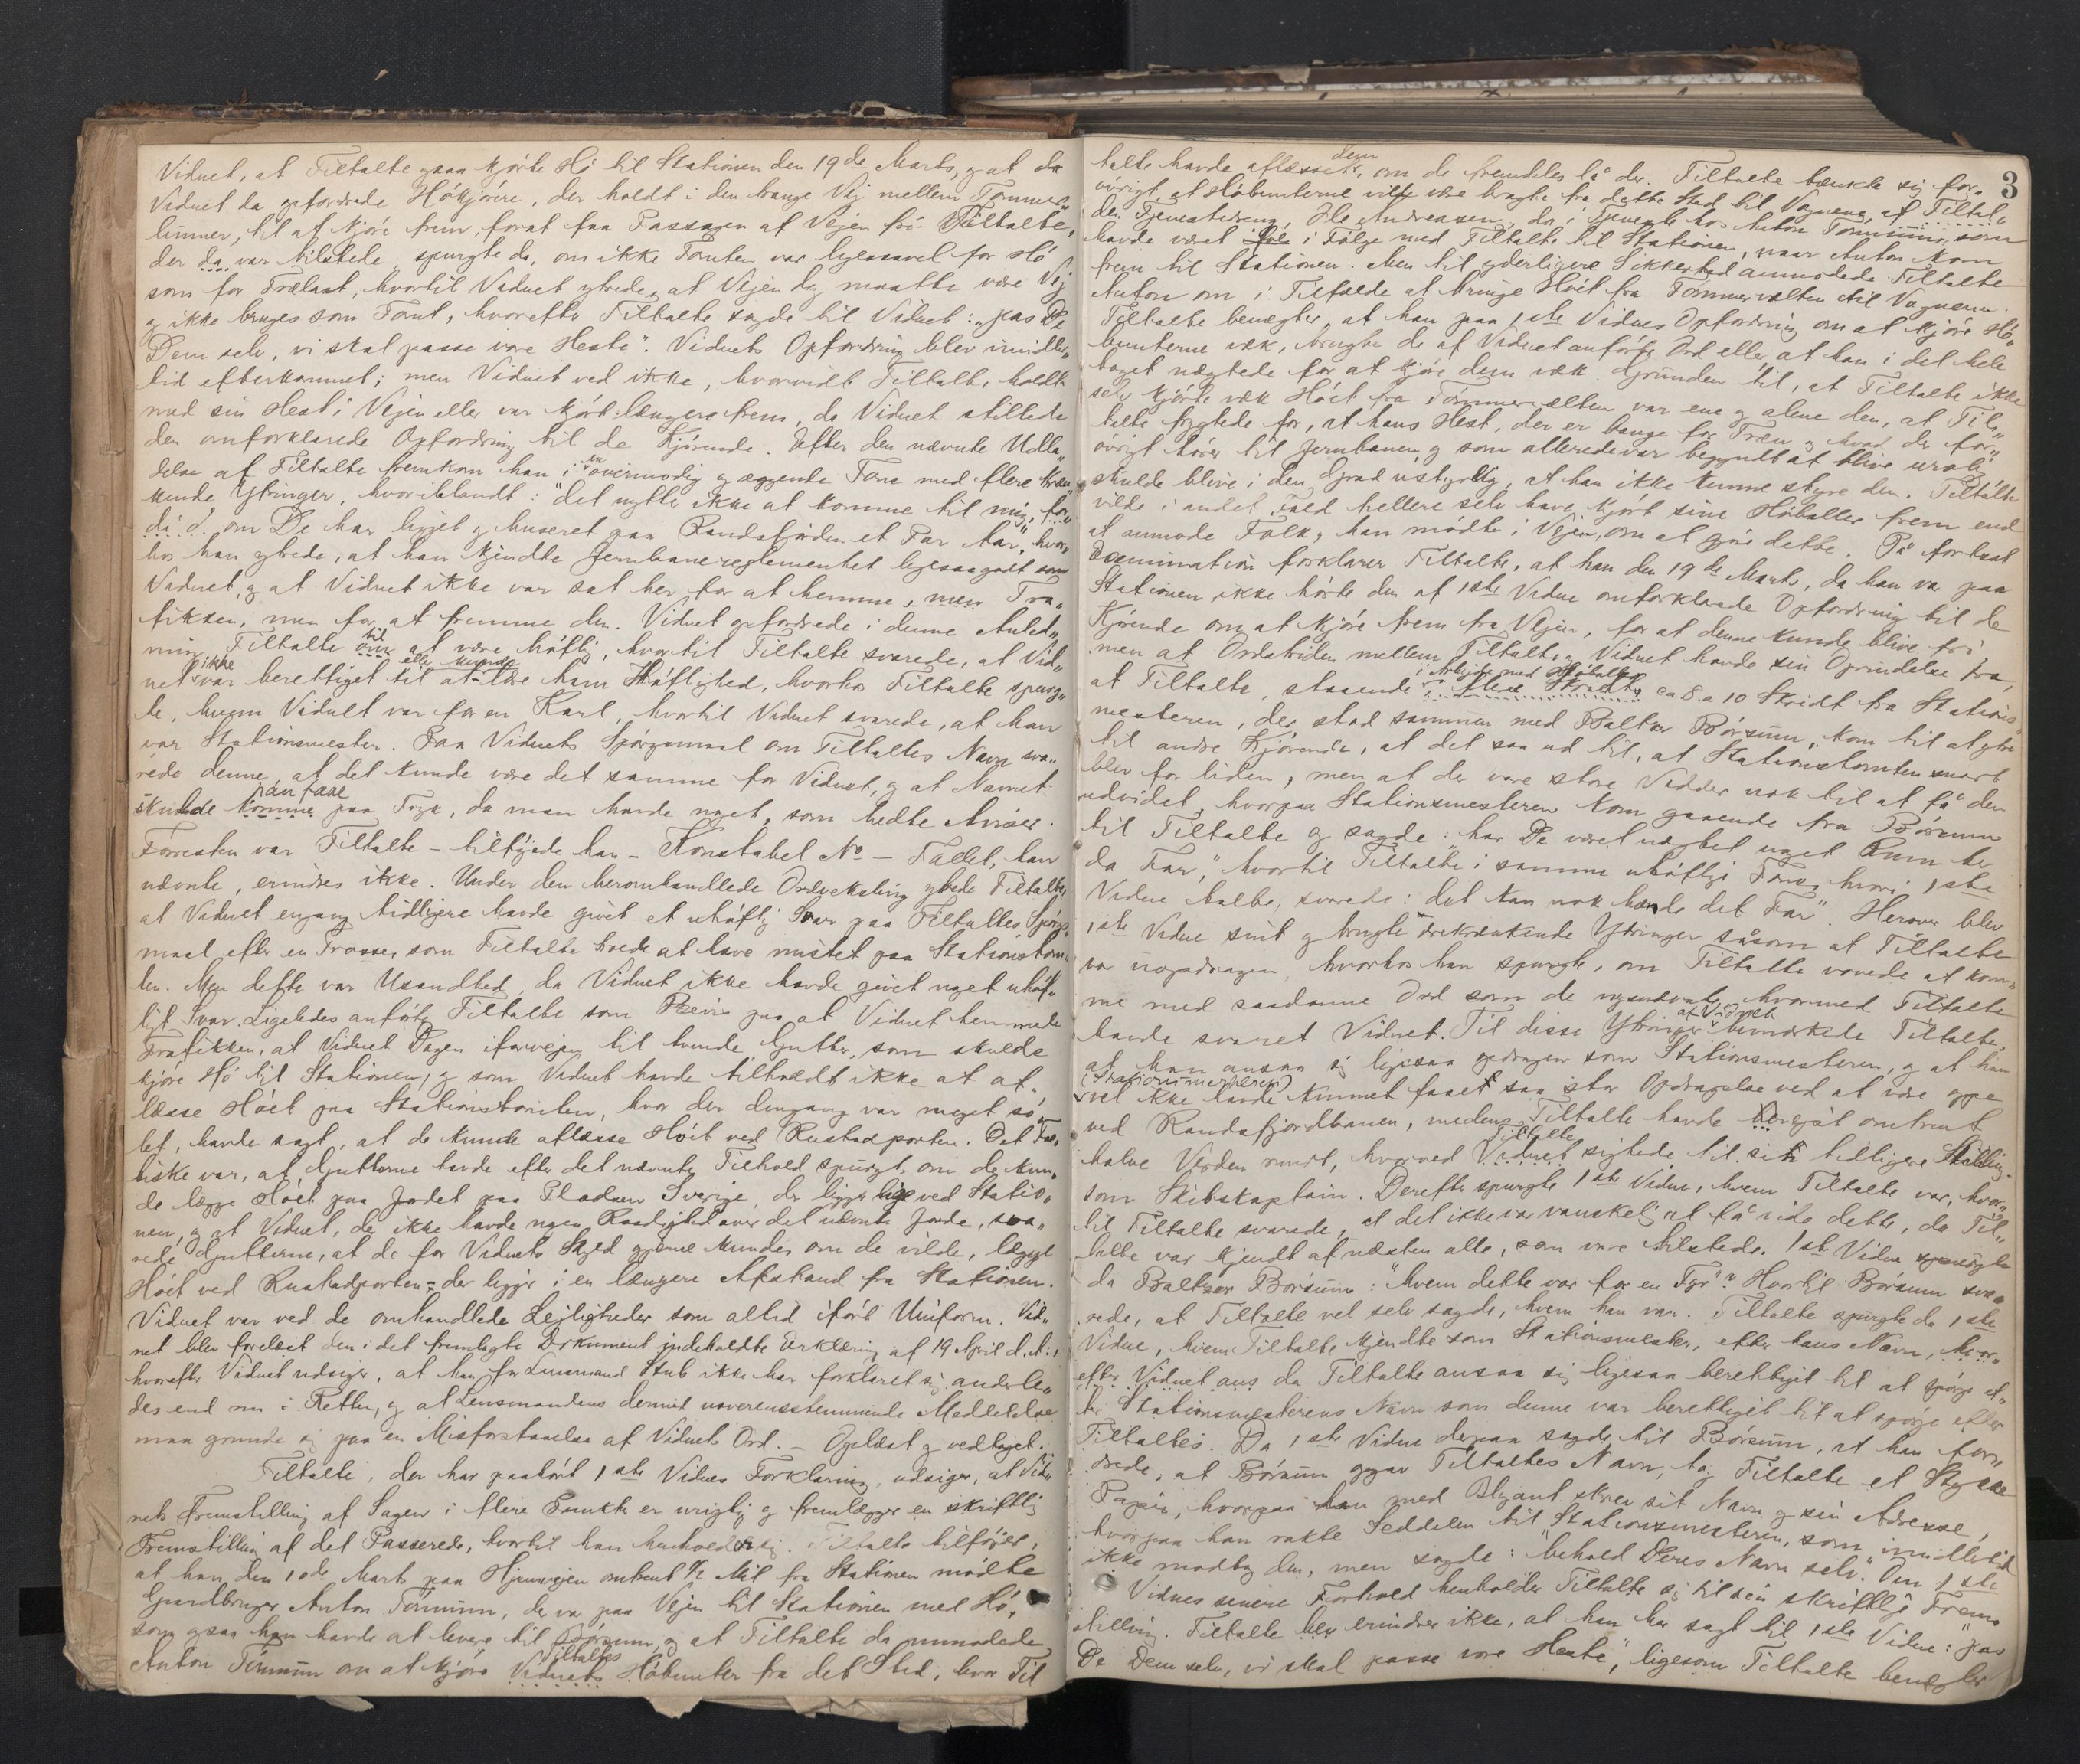 Vidnet, at Tiltalte ogsaa kjörte Hö til Stationen den 19de Marts, og at da
Vidnet da opfordrede Hökjörere, der holdt i den trange Vej mellem Tömmer„
lunner, til at kjöre frem, forat faa Passagen af Vejen fri. Tiltalte,
der da var tilstede, spurgte da, om ikke Tomten var ligesaavel for Hö
som for Trælast, hvortil Vidnet ytrede, at Vejen dog maatte være Vej
og ikke bruges som Tomt, hvorefter Tiltalte sagde til Vidnet: „pas De
Dem selv, vi skal passe vore Heste“. Vidnets Opfordring blev imidler„
tid efterkommet; men Vidnet ved ikke, hvorvidt Tiltalte holdt
med sin Hest i Vejen eller var kjört længere frem, da Vidnet stillede
den omforklarede Opfordring til de Kjörende. Efter den nævnte Udta„
delse af Tiltalte fremkom han i en overmodig og æggende Tone med flere kræn„
kende Ytringer, hvoriblandt: „det nytter ikke at komme til mig, for„
di d. om De har ligget og huseret paa Randsfjorden et Par Aar“, hvor„
hos han ytrede, at han kjendte Jernbanereglementet ligesaagodt som
Vidnet, og at Vidnet ikke var sat her for at hemme, men Tra„
fikken, men for at fremme den. Vidnet opfordrede i denne Anled„
ning Tiltalte om til at være höflig, hvortil Tiltalte svarede, at Vid„
net ikke var berettiget til at eller kunde lære ham Höflighed, hvorhos Tiltalte spurg„
te, hvem Vidnet var for en Karl, hvortil Vidnet svarede, at han
var Stationsmester. Paa Vidnets Spörgsmaal om Tiltaltes Navn sva„
rede denne, at det kunde være det samme for Vidnet, og at Navnet
skulde komme han faae paa Tryk, da man havde noget, som hedte Aviser.
Forresten var Tiltalte – tilföjede han – Konstabel No – Tallet, han
nævnte, erindres ikke. Under den heromhandlede Ordveksling ytrede Tiltalte,
at Vidnet engang tidligere havde givet et uhöfligt Svar paa Tiltaltes Spörgs„
maal efter en Trosse, som Tiltalte troede at have mistet paa Stationstom„
ten. Men dette var Usandhed, da Vidnet ikke havde givet noget uhöf„
ligt Svar. Ligeledes anförte Tiltalte som Bevis paa at Vidnet hemmede
Trafikken, at Vidnet Dagen iforvejen til tvende Gutter, som skulde
kjöre Hö til Stationen, og som Vidnet havde tilholdt ikke at af„
læsse Höet paa Stationstomten, hvor der dengang var meget sö„
let, havde sagt, at de kunde aflæsse Höet ved Rustadporten. Det Fak„
tiske var, at Gutterne havde efter det nævnte Tilhold spurgt, om de kun„
de lægge Höet paa Jordet paa Pladsen Sverige, der ligger lige ved Statio„
nen, og at Vidnet, da ikke havde nogen Raadighed over det nævnte Jorde, sva„
rede Gutterne, at de for Vidnets Skyld gjerne kunde, om de vilde, lægge
Höet ved Rustadporten – der ligger i en længere Afstand fra Stationen.
Vidnet var ved de omhandlede Lejligheder som altid ifört Uniform. Vid„
net blev forelæst den i det fremlagte Dokument indeholdte Erklæring af 19 April d. A.,
hvorefter Vidnet udsiger, at han for Lensmand Stub ikke har forklaret sig anderle„
des end nu i Retten, og at Lensmandens dermed uoverensstemmende Meddelelse
maa grunde sig paa en Misforstaaelse af Vidnets Ord. – Oplæst og vedtaget.
Tiltalte, der har paahört 1ste Vidnes Forklaring, udsiger, at Vid„
nets Fremstilling af Sagen i flere Punkter er urigtig og fremlægger en skriftlig
Fremstilling af det Passerede, hvortil han henholder sig. Tiltalte tilföjer,
at han den 10de Marts paa Hjemvejen omtrent ½ Mil fra Stationen mödte
Gaardbruger Anton Tömmm, der var paa Vejen til Stationen med Hö,
som ogsaa han havde at levere til Börsum, og at Tiltalte da anmodede
Anton om at kjöre Vidnets Tiltaltes Höbunter fra det Sted, hvor Til
3
talte havde aflæsset dem, om de fremdeles lå der. Tiltalte tænkte sig for„
övrigt, at Höbunterne vilde være bragte fra dette Sted til Vognene af Tiltal„
des Tjenestedreng, Ole Andreasen, da i Tjeneste hos Anton, som
havde været i Fölge med Tiltalte til Stationen, naar Anton kom
frem til Stationen. Men til yderligere Sikkerhed anmodede Tiltalte
Anton om i Tilfælde at bringe Höet fra Tömmervælten til Vognene.
Tiltalte benægter, at han paa 1ste Vidnes Opfordring om at kjöre Hö„
bunterne væk, brugte de af Vidnet anförte Ord eller at han i det hele
taget nægtede for at kjöre dem væk. Grunden til, at Tiltalte ikke
selv kjörte væk Höet fra Tömmervælten var ene og alene den, at Til„
talte frygtede for, at hans Hest, der er bange for Træn og hvad der for„
övrigt hörer til Jernbanen, og som allerede var begyndt at blive urolig,
skulde blive i den Grad ustyrlig, at han ikke kunne styre den. Tiltalte
vilde i andet Fald hellere selv have kjört sine Höballer frem end
at anmode Folk, han mödte i Vejen, om at göre dette. På fortsat
Examination forklarer Tiltalte, at han den 19de Marts, da han var paa
Stationen, ikke hörte den af 1ste Vidne omforklarede Opfordring til de
Kjörende om at kjöre frem fra Vejen, for at denne kunde blive fri
men at Ordstriden mellem Tiltalte og Vidnet havde sin Oprindelse fra,
at Tiltalte, staaende i Arbejde med Höballer flere Skridt ca 8 a 10 Skridt fra Stations„
mesteren, der stod sammen med Baltzer Börsum, kom til at ytre
til andre Kjörende, at det saa ud til, at Stationstomten snart
blev for liden, men at der vare store Vidder nok til at få den
udvidet, hvorpaa Stationsmesteren kom gaaende fra Börsum
til Tiltalte og sagde: „har De været nægtet noget Rum her
da Far“, hvortil Tiltalte i samme uhöflige Tone, hvori 1ste
Vidne talte, svarede: „det kan nok hænde det Far“. Herover blev
1ste Vidne sint og brugte ærekrænkende Ytringer såsom at Tiltalte
var uopdragen, hvorhos han spurgte, om Tiltalte vovede at kom„
me med saadanne Ord som de nysnævnte, hvormed Tiltalte
havde svaret Vidnet. Til disse Ytringer af Vidnet bemærkede Tiltalte,
at han ansaa sig ligesaa opdragen som Stationsmesteren, og at han
(Stationsmesteren) vel ikke havde kunnet faaet saa stor Opdragelse ved at være oppe
ved Randsfjordbanen, medens Tiltalte havde beregst omtrent
halve Verden rundt, hvorved Vidnet Tiltalte sigtede til sin tidligere Stilling
som Skibskaptain. Derefter spurgte 1ste Vidne, hvem Tiltalte var, hvor„
til Tiltalte svarede, at det ikke var vanskelig at få vide dette, da Til„
talte var kjendt af næsten alle, som vare tilstede. 1ste Vidne spurgte
da Baltzer Börsum: „hvem dette var for en Fyr“? Hvortil Börsum sva„
rede, at Tiltalte vel selv sagde, hvem han var. Tiltalte spurgte da 1ste
Vidne, hvem Tiltalte kjendte som Stationsmester, efter hans Navn, hvor„
efter Vidnet ans da Tiltalte ansaa sig ligesaa berettiget til at spörge ef„
ter Stationsmesterens Navn som denne var berettiget til at spörge efter
Tiltaltes. Da 1ste Vidne derpaa sagde til Börsum, at han for„
drede, at Börsum opgav Tiltaltes Navn, tog Tiltalte et Stykke
Papir, hvorpaa han med Blyant skrev sit Navn og sin Adresse,
hvorpaa han rakte Seddelen til Stationsmesteren, som imidlertid
ikke modtog den, men sagde: „behold Deres Navn selv“. Om 1ste
Vidnes senere Forhold henholder Tiltalte sig til sin skriftlige Frem„
stilling. Tiltalte erindrer ikke, at han har sagt til 1ste Vidne: „pas
De Dem selv, vi skal passe vore Heste“, ligesom Tiltalte benegter